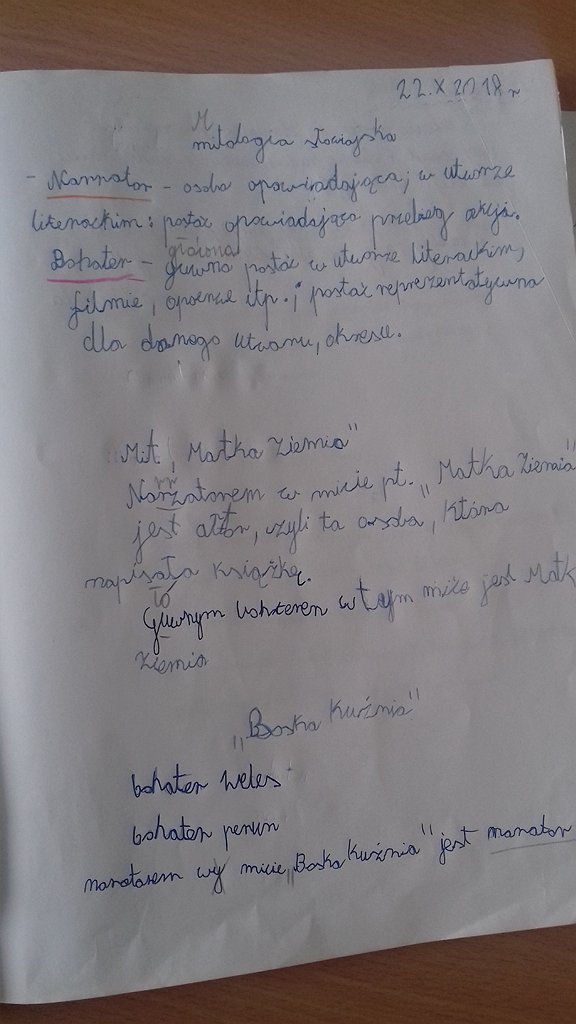 22.X 2018 r
M
mitologia słowiańska
- Narrator - osoba opowiadająca; w utworze
literackim: postać opowiadająca przebieg akcji.
główna
Bohater - guwna postać w utworze literackim,
filmie, operze itp.; postać reprezentatywna
dla danego utworu, okresu.
Mit „Matka Ziemia"
rr
Narzatorem w micie pt. „Matka Ziemia"
jest ałtor, czyli ta osoba, która
napisała książkę.
łó
Guwnym bohterem w tym micie jest Matk
Ziemia
„Boska Kuźnia"
bohater Weles
bohater perun
naratorem wy micie „Boska Kuźnia" jest narrator